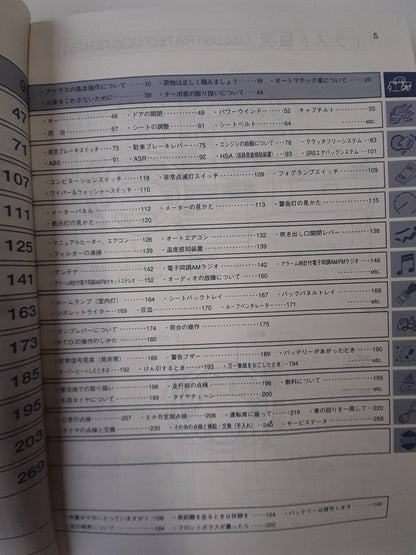 イラスト目次 [ILLUSTRATED CONTENTS]
5
・アトラスの基本操作について ……10 ・荷物は正しく積みましょう ……18 ・オートマチック車について ……29
・お車をこわさないために ……38 ・ターボ車の取り扱いについて ……44
47
・キー ……48 ・ドアの開閉 ……49 ・パワーウインドー ……52 ・キャブチルト ……55
・荷台 ……57 ・シートの調整 ……61 ・シートベルト ……64 etc.
71
・排気ブレーキスイッチ ……73 ・駐車ブレーキレバー ……75 ・エンジンの始動について ……76 ・クラッチフリーシステム ……83
・ABS ……91 ・ASR ……92 ・HSA（坂路発進補助装置） ……97 ・SRSエアバッグシステム ……101
107
・コンビネーションスイッチ ……118 ・非常点滅灯スイッチ ……109 ・フォグランプスイッチ ……109
・ワイパー&ウォッシャースイッチ ……110
111
・メーターパネル ……112 ・メーターの見かた ……113 ・警告灯の見かた ……115
・表示灯の見かた ……120
125
・マニュアルヒーター、エアコン ……126 ・オートエアコン ……132 ・吹き出し口開閉レバー ……138
・フィルターの清掃 ……139 ・温度感知装置 ……139
141
・アンテナ ……142 ・電子同調AMラジオ ……142 ・アラーム時計付電子同調AM/FMラジオ ……146
・アラーム時計付電子同調AM/FMカセットステレオ ……152 ・オーディオの故障について ……160 etc.
163
・ルームランプ（室内灯） ……164 ・シートバックトレイ ……167 ・バックパネルトレイ ……168
・シガレットライター ……169 ・灰皿 ……170 ・ルーフベンチレーター ……171 etc.
173
・ダンプレバーについて ……174 ・荷台の操作 ……175
・PTOの操作のしかた ……180
185
・非常信号用具（発炎筒） ……186 ・警告ブザー ……189 ・バッテリーがあがったとき ……190
・オーバーヒートしたときは ……192 ・けん引するとき ……193 ・万一事故をおこしたとき ……194 etc.
195
・寒冷地での取り扱い ……196 ・走行前の点検 ……196 ・燃料について ……199
・冬用タイヤについて ……200 ・タイヤチェーン ……200 etc.
203
・日常の点検 ……207 ・6か月定期点検 ……208 ・運転席に座って ……216 ・車の回りを一周して ……220
・タイヤの点検と交換 ……230 ・その他の点検と補給・交換（手入れ） ……240 ・サービスデータ ……258
269
・バッテリーは疲労します ……140
・長距離を走るときは休憩を ……124
・フロントガラスが曇ったら ……202